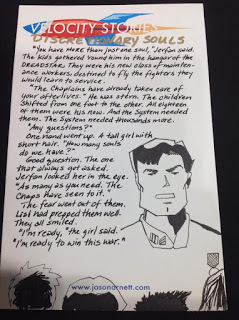 VELOCITY STORIES
DISCRETIONARY SOULS
"You have more than just one soul," Jerfan said.
The kids gathered round him in the hangar of the
DREADSTAR. They were his new class of mainten-
ance workers destined to fly the fighters they
would learn to service.
"The Chaplains have already taken care of
your afterlives." He was stern. The children
shifted from one foot to the other. All eighteen
of them were his now. And the System needed
them. The System needed thousands more.
"Any questions?"
One hand went up. A tall girl with
short hair. "How many souls
do we have?"
Good question. The one
that always got asked.
Jerfan looked her in the eye.
"As many as you need. The
Chaps have seen to it."
The fear went out of them.
Lizl had prepped them well.
They all smiled.
"I'm ready," the girl said.
"I'm ready to win this war."
www.jasonarnett.com